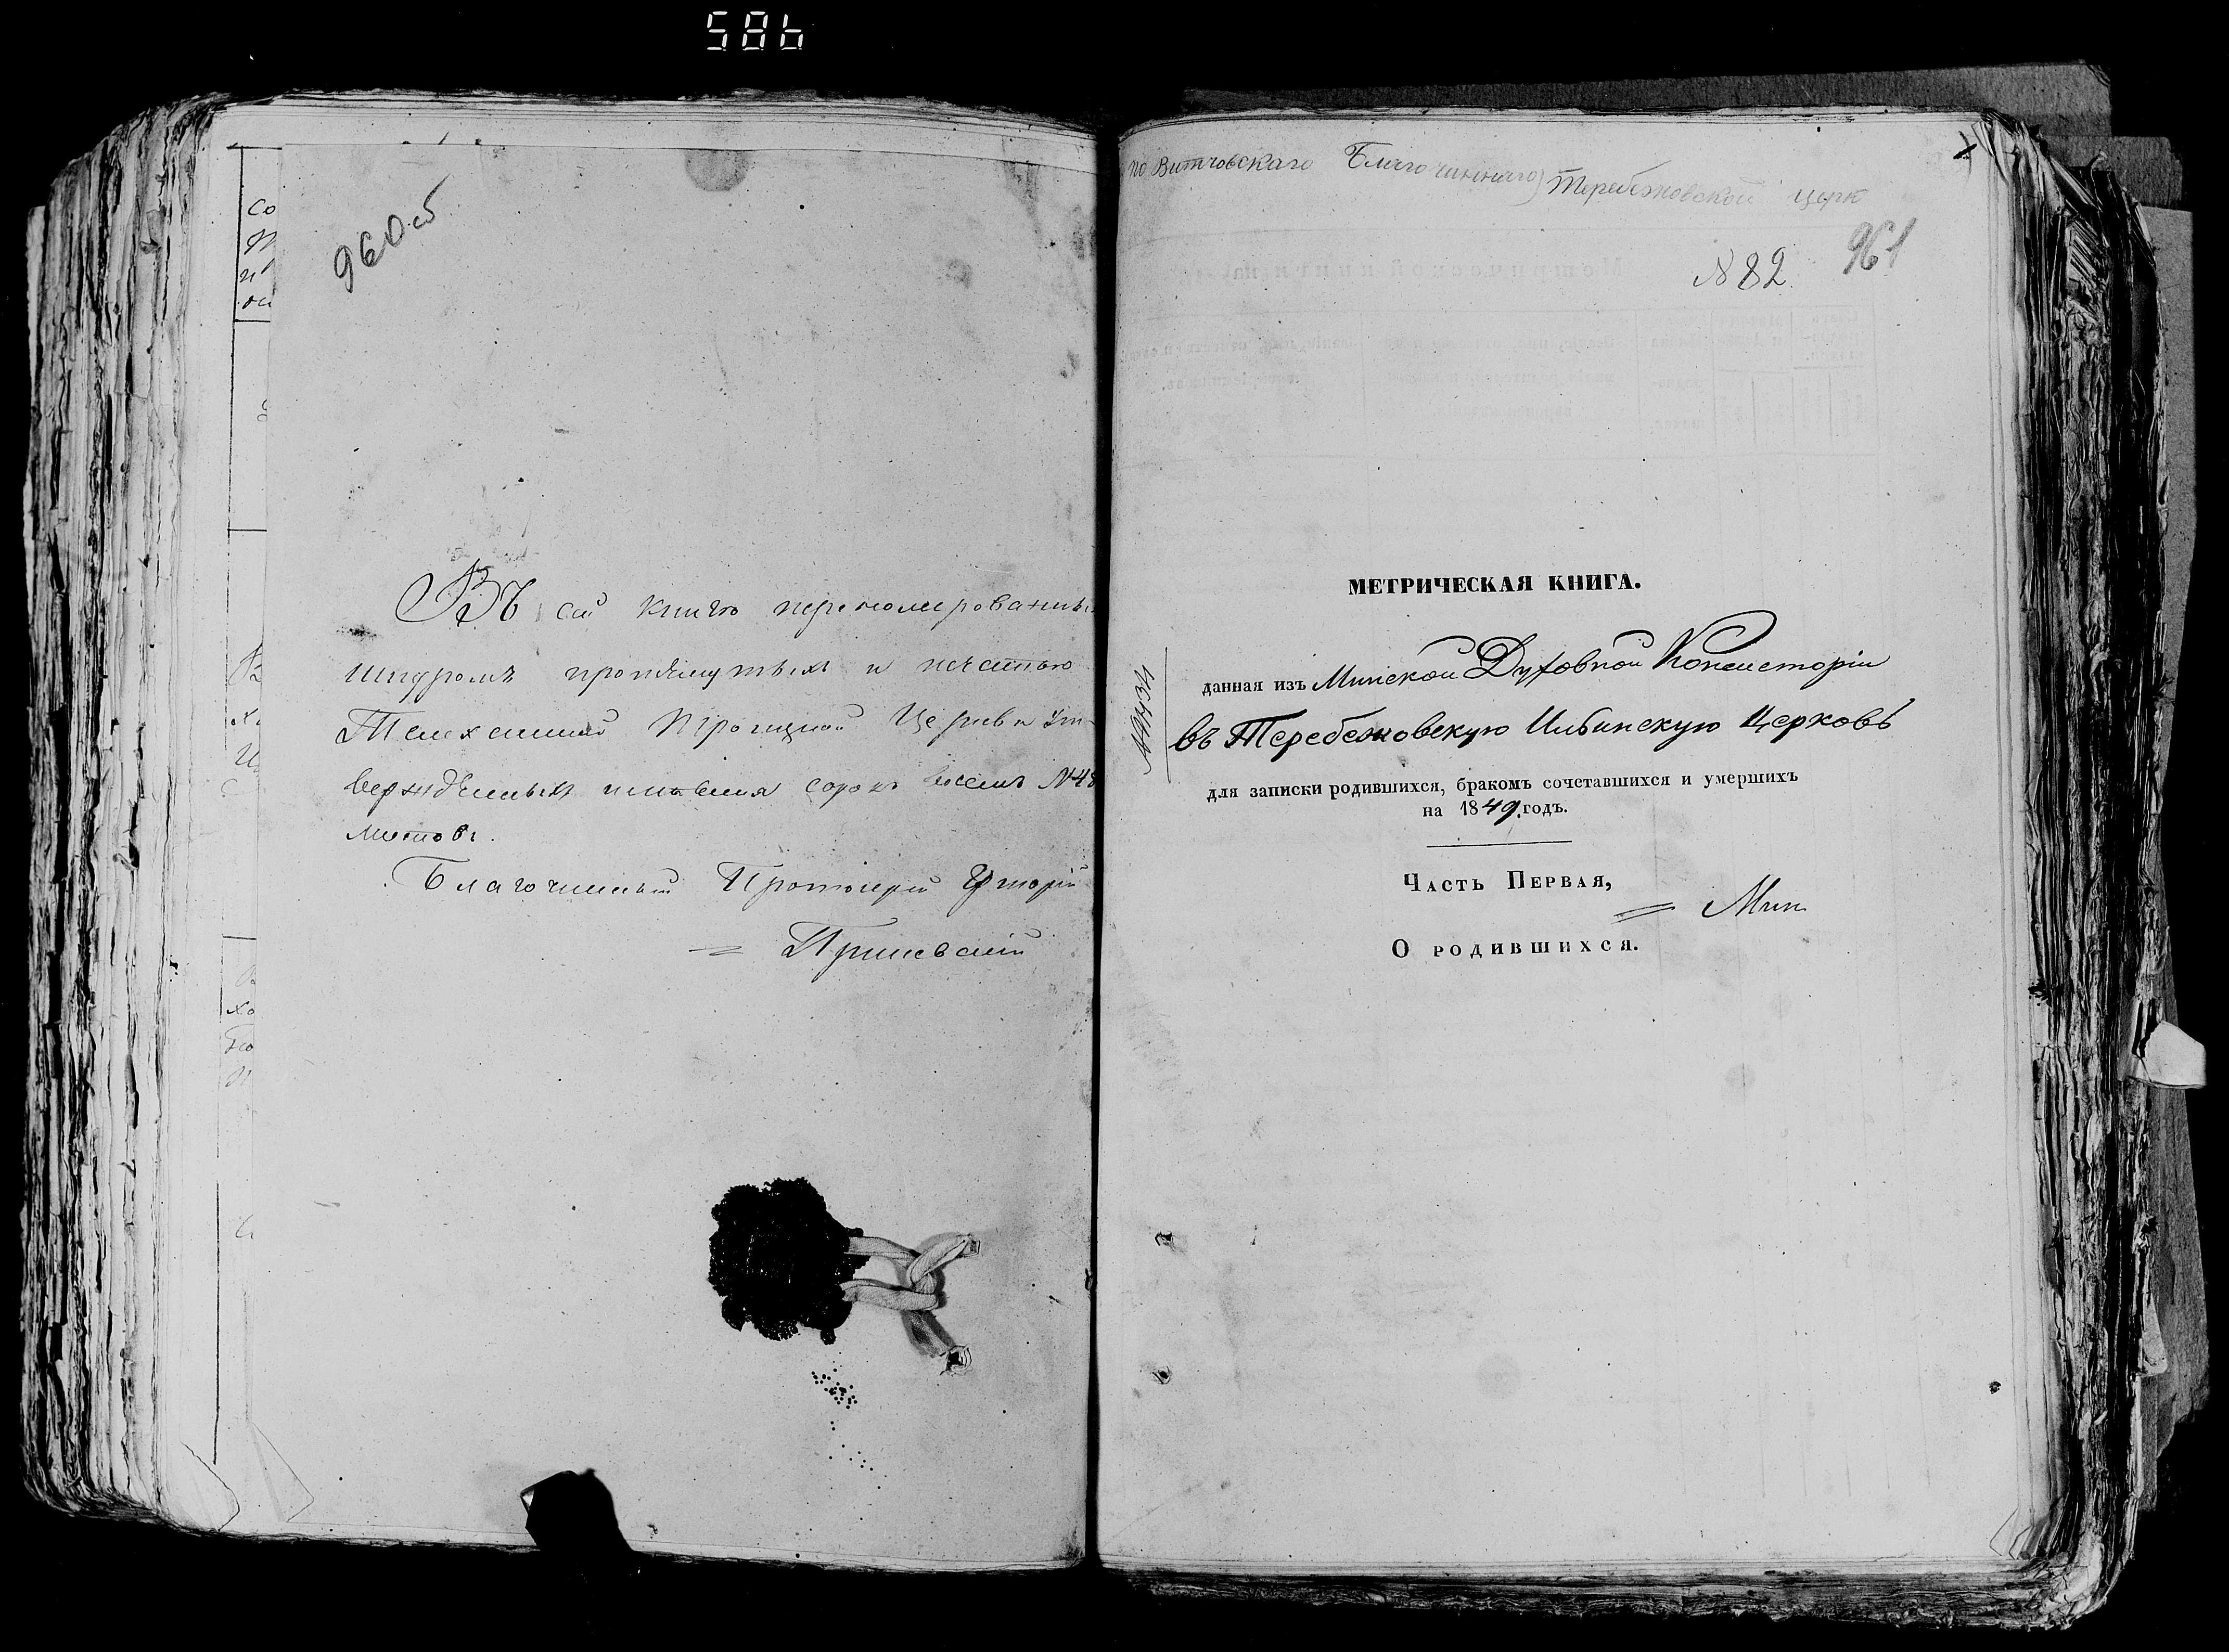 586
960 об
Въ сей книгѣ перенумерованныхъ
шнуромъ протянутыхъ и печатью
Телеханской Троицкой Церкви ут-
вержденныхъ писанныхъ сорокъ восемь №48
листовъ.
Благочинный Протоіерей
по Витчовскаго Благочиннаго Теребежовской церк
№ 82 961
МЕТРИЧЕСКАЯ КНИГА.
данная изъ Минской Духовной Консисторіи
въ Теребежовскую Ильинскую Церковь
для записки родившихся, бракомъ сочетавшихся и умершихъ
на 1849. годъ.
Часть Первая,
Мин
О родившихся.